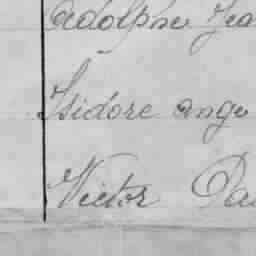 Adolphe Jea
Isidore ange
Victor Pau